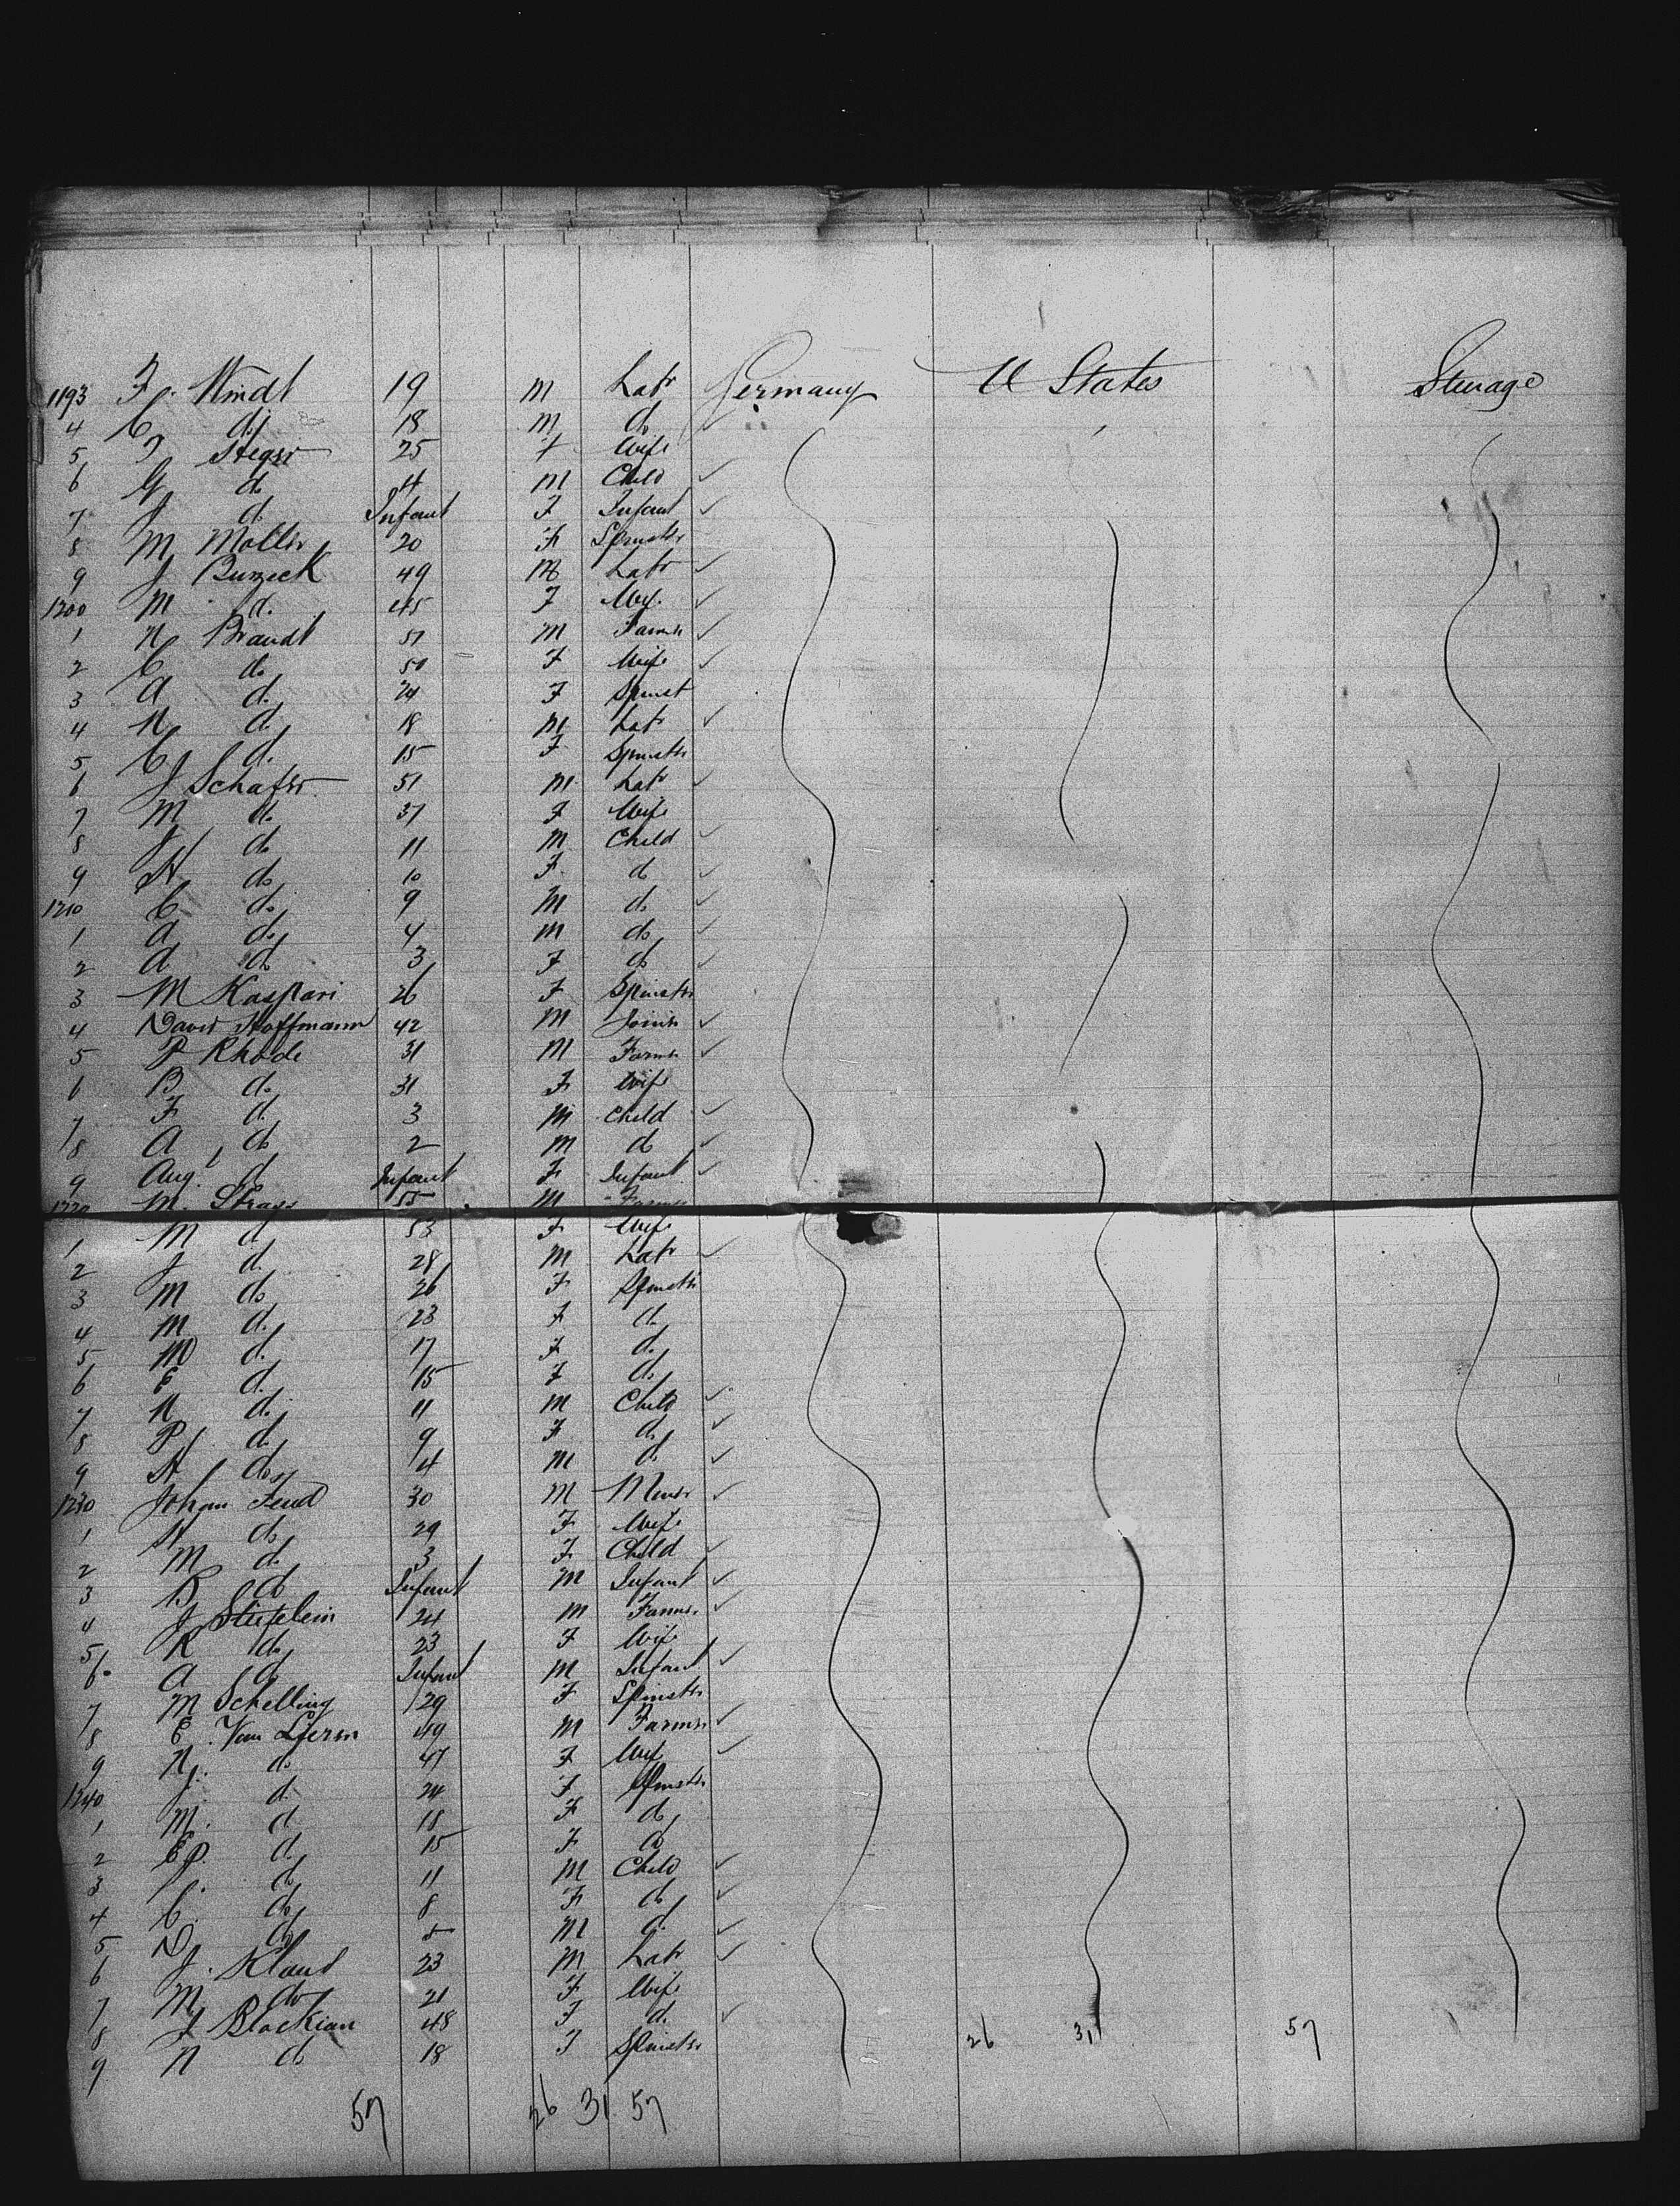 1193 F. Windt 19 M Labr Germany U States Steerage
4 C do 18 M do
5 J Steger 25 F Wife
6 G do 4 M Child
7 J do Infant F Infant
8 M Moller 20 F Spinster
9 J Burzeck 49 M Labr
1200 M do 45 F Wife
1 N Brandt 51 M Farmer
2 C do 50 F Wife
3 A do 24 F Spinst
4 N do 18 M Labr
5 C do 15 F Spinster
6 J Schafer 51 M Labr
7 M do 37 F Wife
8 J do 11 M Child
9 H do 10 F do
1210 C do 9 M do
1 A do 4 M do
2 A do 3 F do
3 M Kaspari 26 F Spinster
4 David Hoffmann 42 M Joiner
5 P Rhode 31 M Farmer
6 B do 31 F Wife
7 F do 3 M Child
8 A do 2 M do
9 Aug. do Infant F Infant
1220 M. Strass 55 M Farmer
1 M do 53 F Wife
2 J do 28 M Labr
3 M do 26 F Spinster
4 M do 23 F do
5 M do 17 F do
6 E do 15 F do
7 N do 11 M Child
8 P do 9 F do
9 H do 4 M do
1230 Johan Feud 30 M Miner
1 H do 29 F Wife
2 M do 3 F Child
3 B do Infant M Infant
4 J Stufelein 24 M Farmer
5 K do 23 F Wife
6 A do Infant M Infant
7 M Schelling 29 F Spinster
8 E. Van 49 M Farmer
9 N. do 47 F Wife
1240 J. do 24 F Spinster
1 M. do 18 F do
2 do 15 F do
3 do 11 M Child
4 C. do 8 F do
5 D do 5 M do
6 J. Klaus 23 M Labr
7 M do 21 F Wife
8 J Blockian 48 F do
9 N do 18 F Spinster
26 31 57
57 26 31 57